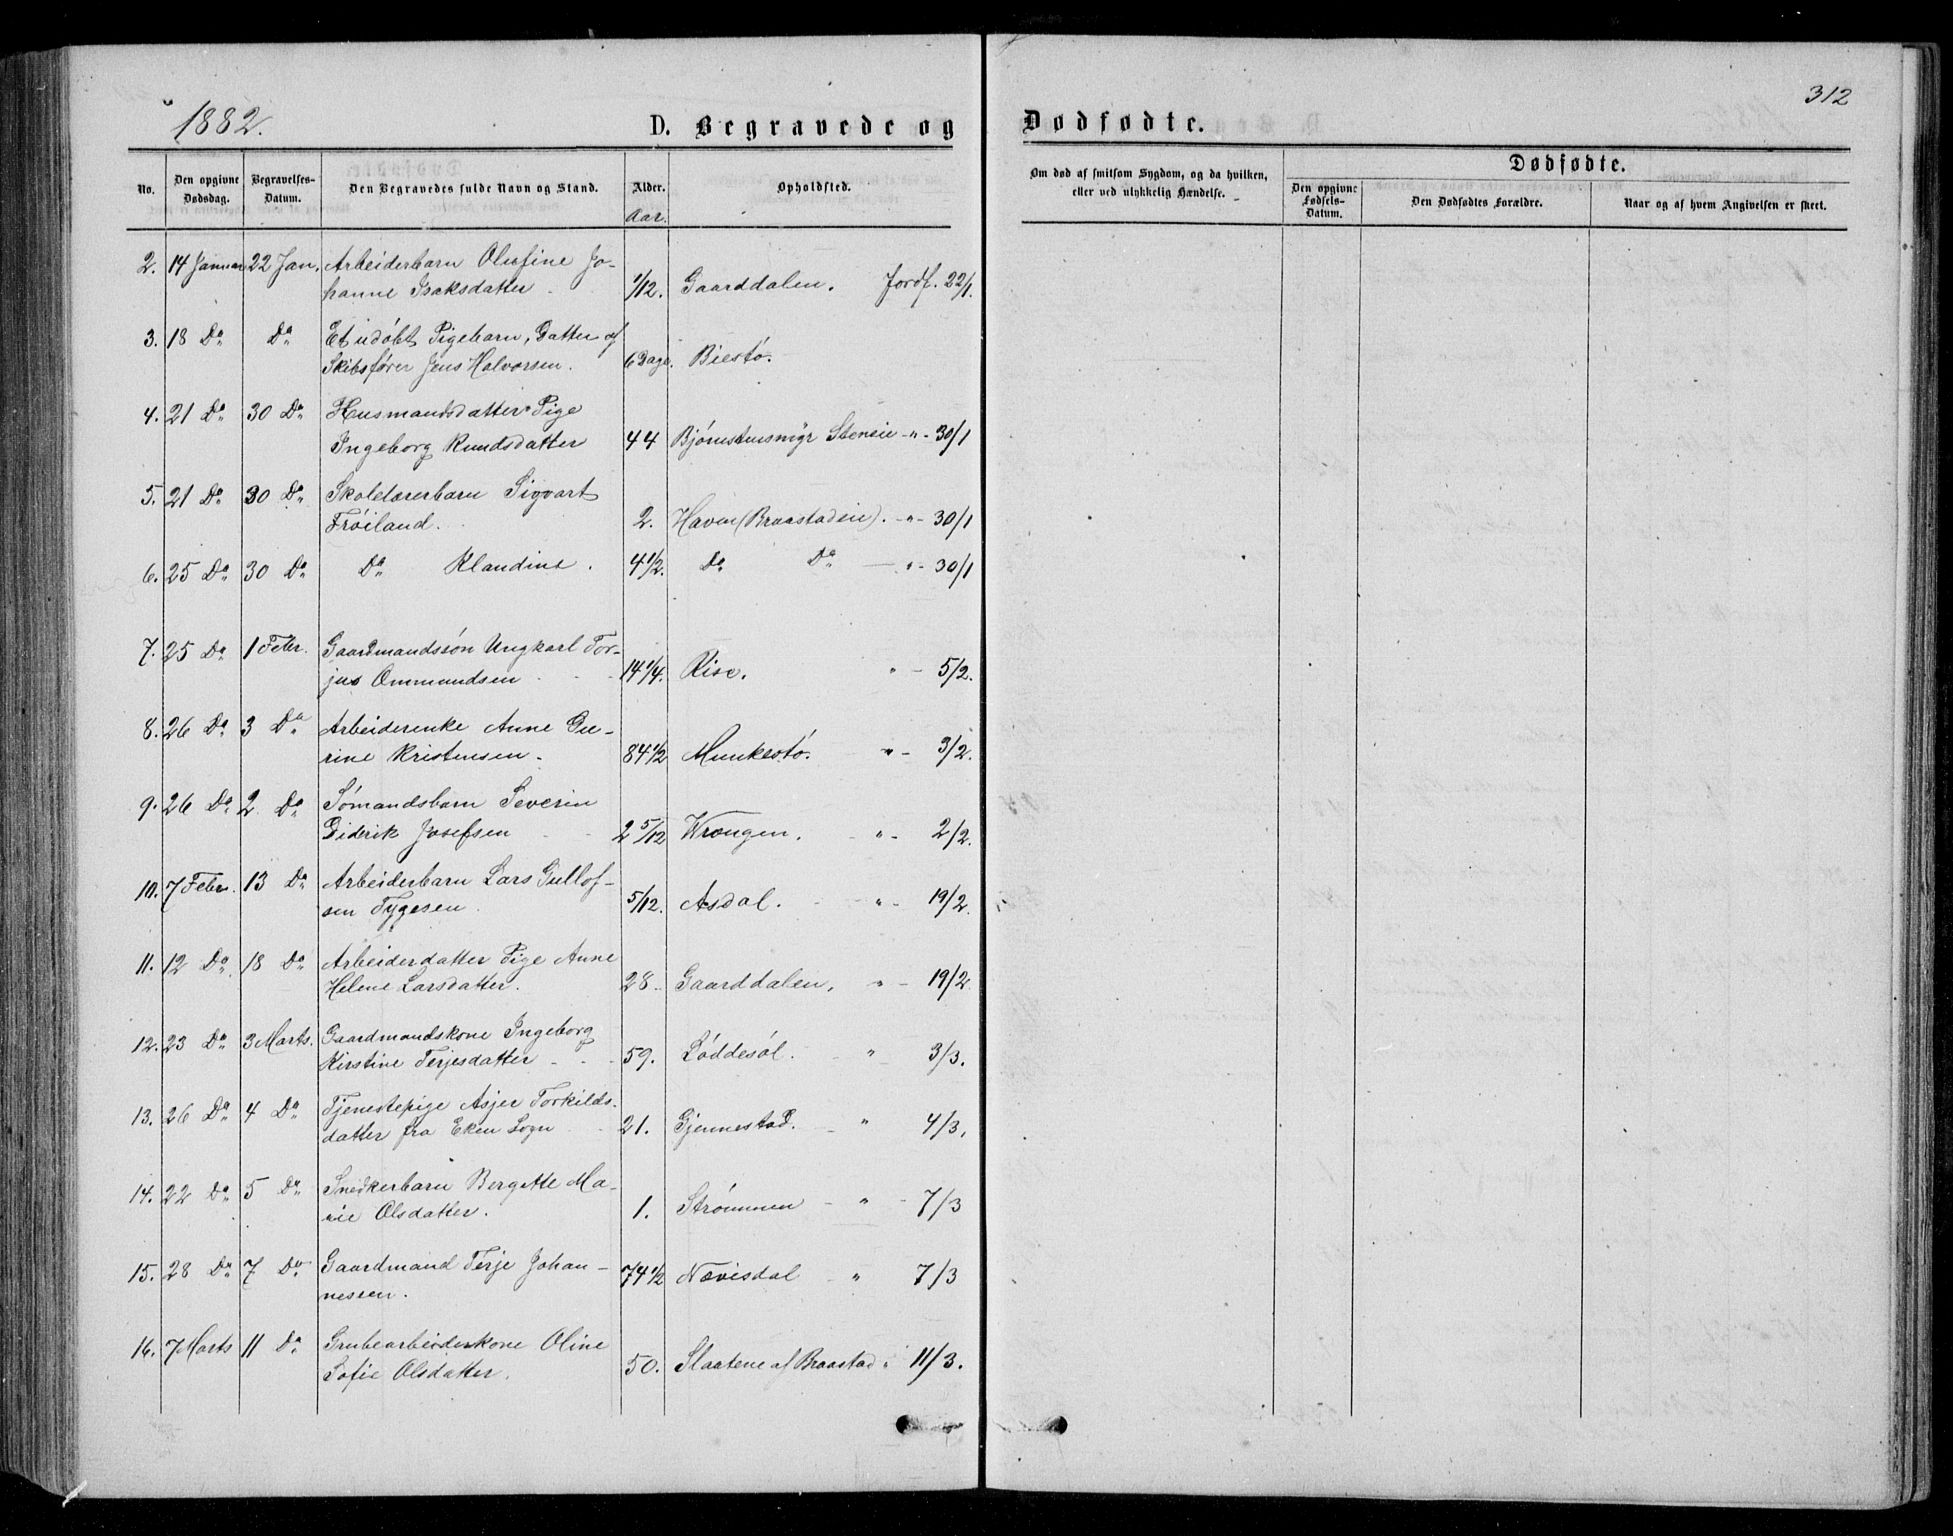 1882.
D. Begravede og
Dødfødte.
312
No.
Den opgivne Dødsdag.
Begravelses-Datum.
Den Begravedes fulde Navn og Stand.
Alder.
Opholdsted.
Om død af smitsom Sygdom, og da hvilken, eller ved ulykkelig Hændelse.
Dødfødte.
Den opgivne Fødsels-Datum.
Den Dødfødtes Forældre.
Naar og af hvem Angivelsen er skeet.
Aar.
2. 14 Januar 22 Jan. Arbeiderbarn Olufine Jo-
hanne Isaksdatter 1/12. Gaarddalen. Jordf. 22/1.
3. 18 Do Do Et udøbt Pigebarn, Datter af
Skibsfører Jens Halvorsen. 6 Dage. Biestø.
4. 21 Do 30 Do Husmandsdatter Pige
Ingeborg Knudsdatter 44 Bjørnstensmyr Stenseie -"- 30/1
5. 21 Do 30 Do Skolelærerbarn Sigvart
Frøiland. 2. Haven (Braastadeie). -"- 30/1
6. 25 Do 30 Do Do Klandine. 4 1/2. Do Do -"- 30/1
7. 25 Do 1 Febr. Gaardmandssøn Ungkarl Tor-
jus Ommundsen 14 1/4. Rise. " - 5/2.
8. 26 Do 3 Do Arbeiderenke Anne Gu-
rine Kristensen. 84 1/2 Munkestø. " - 3/2.
9. 26 Do 2 Do Sømandsbarn Severin
Diderik Josefsen 2 5/12 Wrengen. - " - 2/2.
10. 7 Febr. 13 Do Arbeiderbarn Lars Gullof-
sen Tygesen 5/12. Asdal. - " - 19/2.
11. 12 Do 18 Do Arbeiderdatter Pige Anne
Helene Larsdatter. 28. Gaarddalen. " - 19/2
12. 23 Do 3 Marts. Gaardmandskone Ingeborg
Kirstine Terjesdatter 59. Løddesøl. " 3/3.
13. 26 Do 4 Do Tjenestepige Asjer Torkilds-
datter fra Eken Sogn 21. Gjennestad. " 4/3.
14. 22 Do 5 Do Snedkerbarn Bergitte Ma-
rie Olsdatter. 1. Strømmen - " - 7/3
15. 28 Do 7 Do Gaardmand Terje Johan-
nessen. 74 1/2 Nævisdal " 7/3
16. 7 Marts 11 Do Grubearbeiderkone Oline
Sofie Olsdatter. 50. Slaatene af Braastad " 11/3.